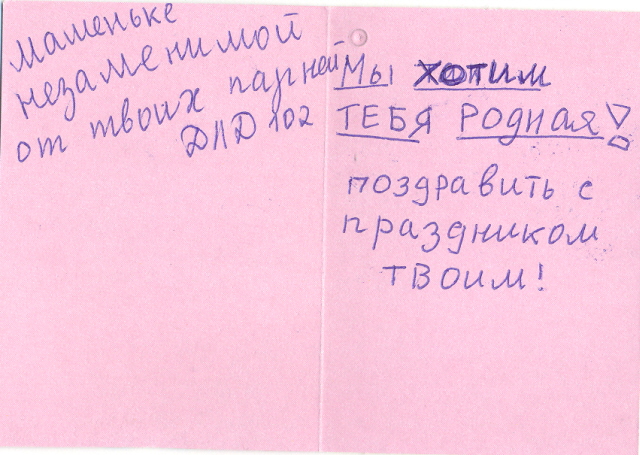 маменьке
незаменимой
от твоих парней
ДПД 102
Мы ХОТИМ
ТЕБЯ РОДНАЯ!
поздравить с
праздником
твоим!